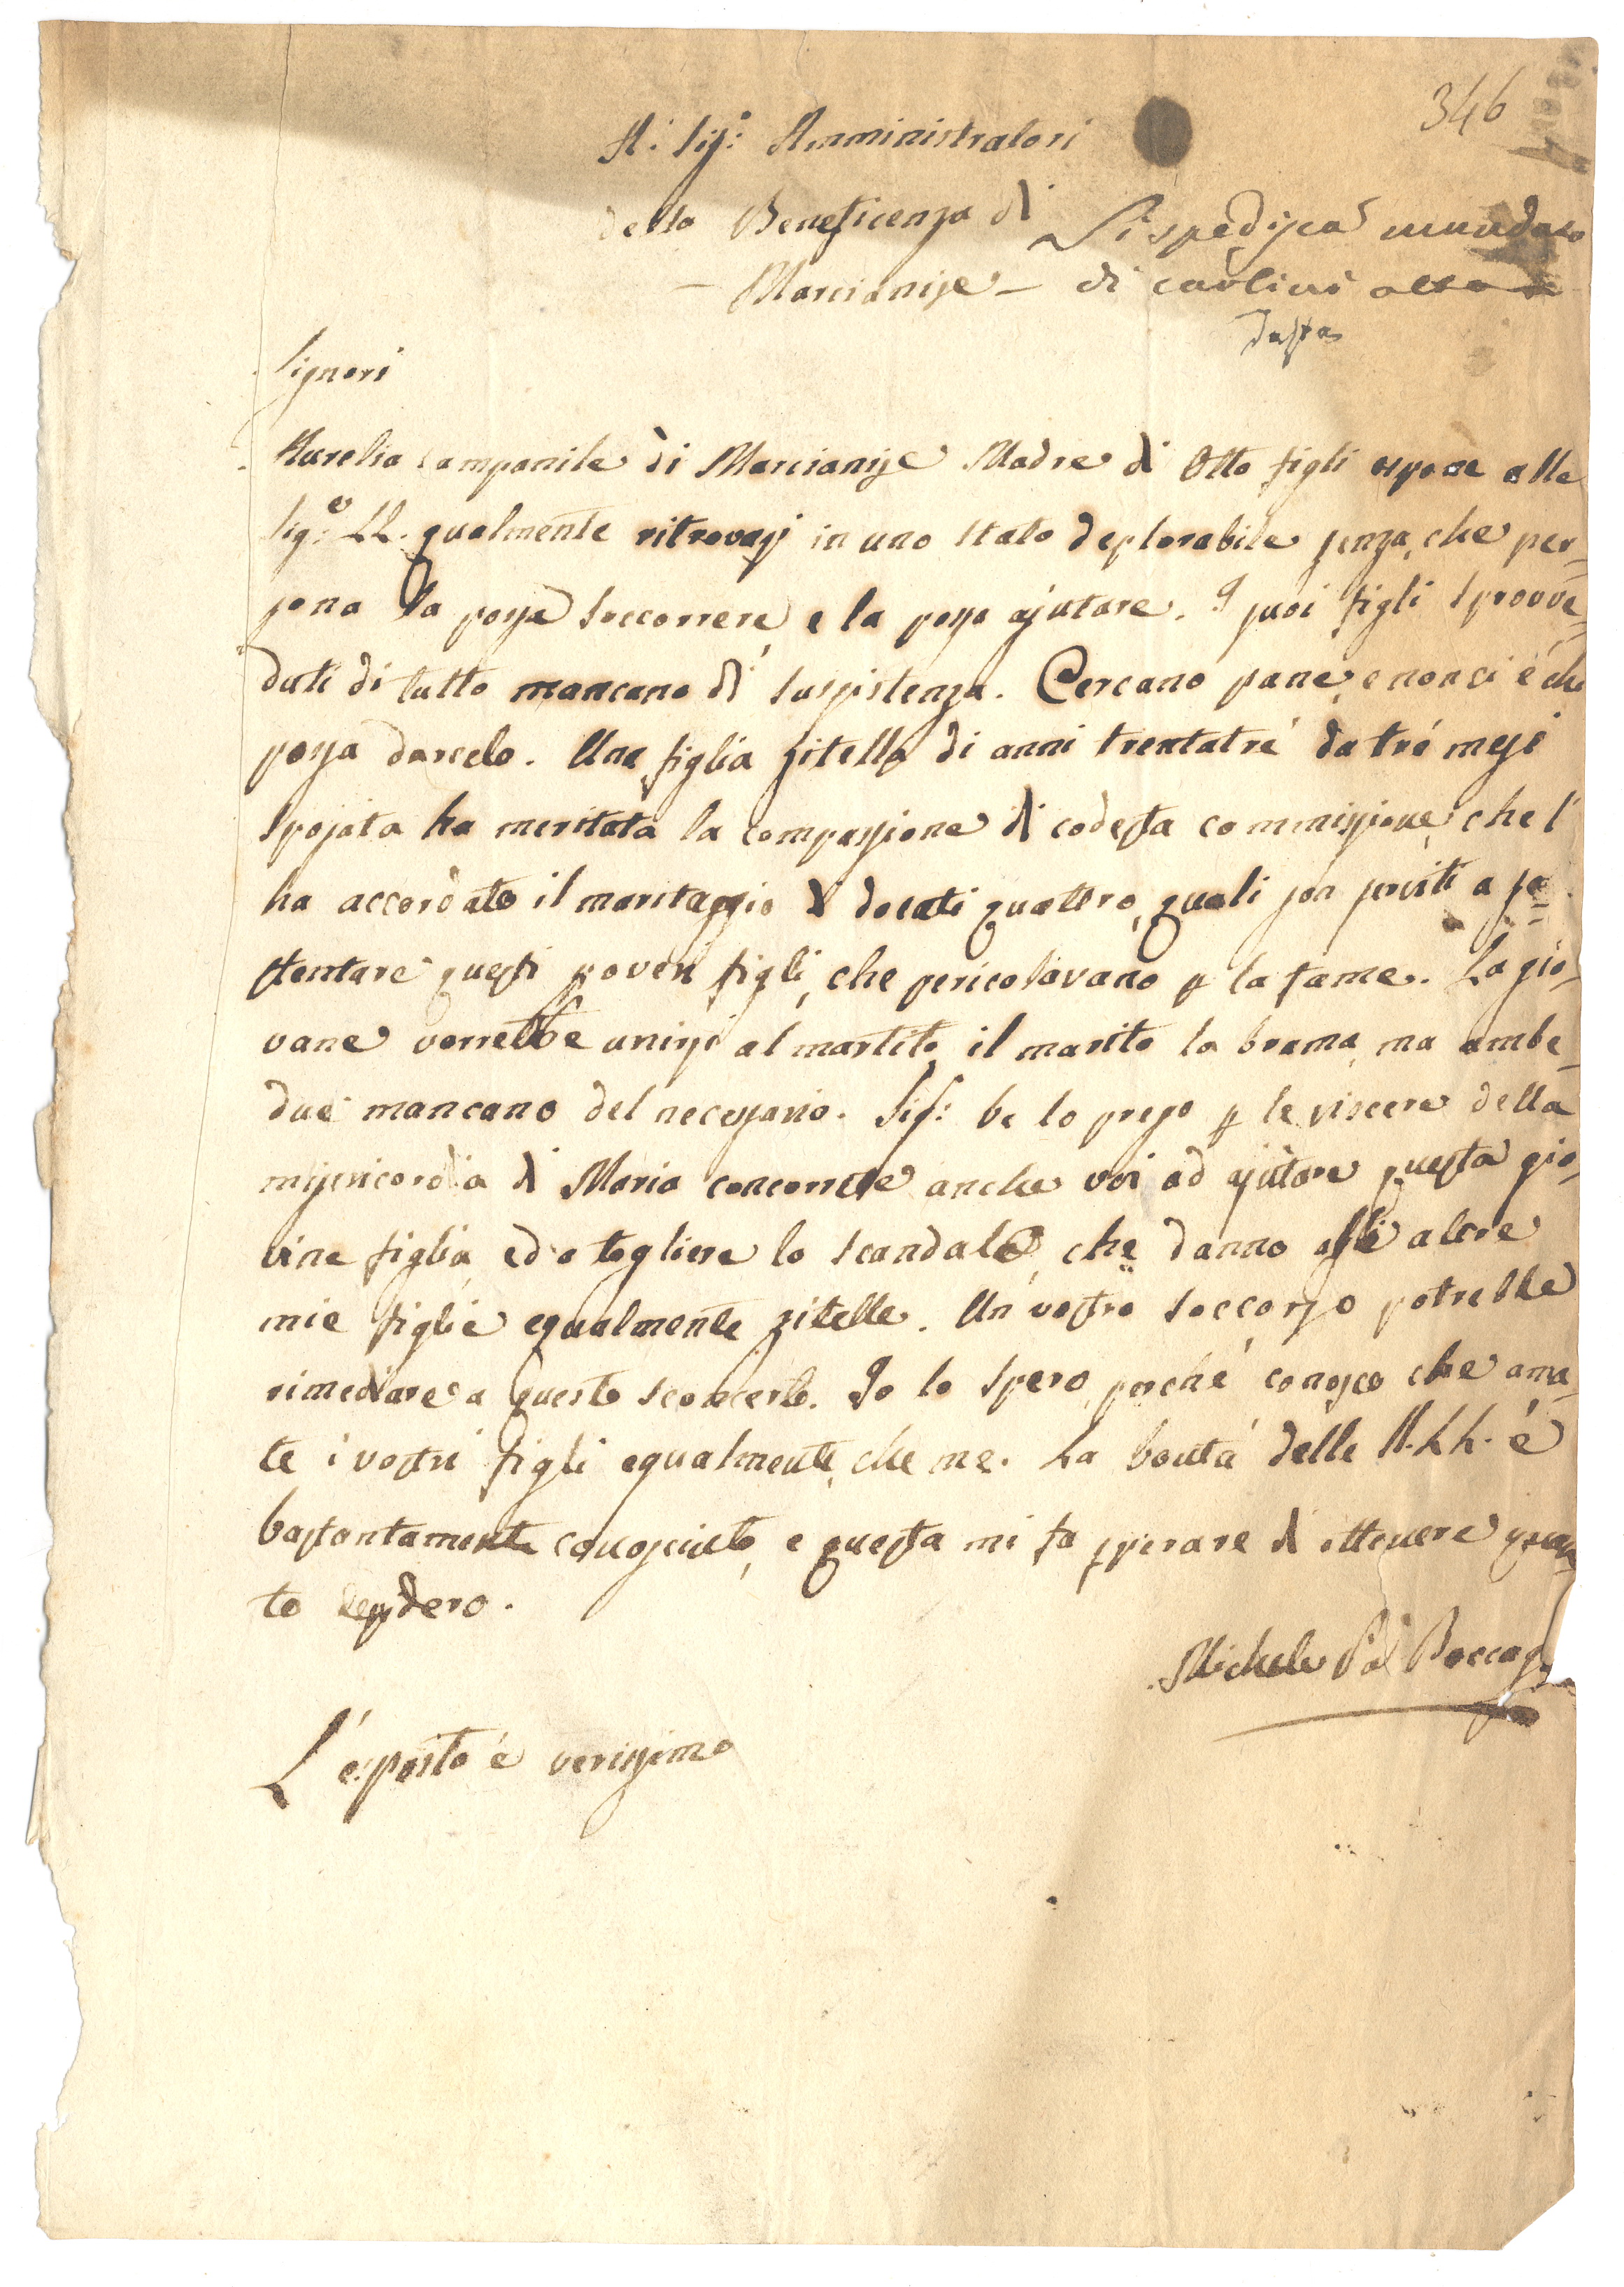 346
A: Sig.i Amministratori
della Beneficenza di
– Marcianise –
Si spedisca mandato
di carlini otto
Signori
Aurelia Campanile di Marcianise Madre di Otto figli espone alle
Sig.e LL. qualmente ritrovasi in uno stato deplorabile senza, che per=
sona la possa soccorrere, e la possa ajutare. I suoi figli sprovve=
duti di tutto mancano di sussistenza. Cercano pane, e non ci è chi
possa darcelo. Una figlia zitella di anni trentatré da tré mesi
sposata ha meritata la compassione di codesta commissione, che l'
ha accordato il maritaggio di docati quattro, quali son serviti a so=
stentare questi poveri figli, che pericolavano p la fame. La gio=
vane vorrebbe unirsi al martito, il marito la brama, ma ambe=
due mancano del necessario. Sig.i ve lo prego p le viscere della
misericordia di Maria concorrete anche voi ad ajutare questa gio=
vine figlia, ed a togliere lo scandalo, che danno alle altre
mie figlie egualmente zitelle. Un vostro soccorso potrebbe
rimediare a questo sconcerto. Io lo spero, perché conosco che ama=
te i vostri figli egualmente, che me. La bontà delle LL. è
bastantamente conosciuta, e questa mi fa sperare di ottenere quan=
to desidero.
Michele
L'esposto è verissimo